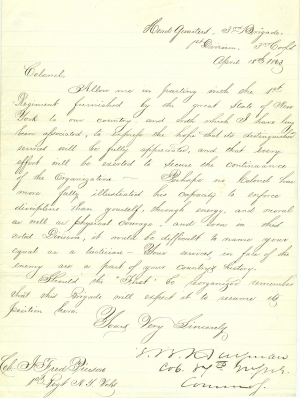 Head Quarters, 3rd Brigade.
1st Division, 3rd Corps
April 18th 1863
Colonel,
Allow me in parting with the 1st
Regiment furnished by the great State of New
York to our country and with which I have long
been associated, to express the hope that its distinguished
services will be fully appreciated, and that every
effort will be exerted to secure the continuance
of the Organization – Perhaps no Colonel has
more fully illustrated his capacity to enforce
discipline than yourself, through energy, and moral
as well as physical courage, and even in this
noted Division, it would be difficult to name your
equal as a tactician – Your services in face of the
enemy are a part of your country's history.
Should the "First" be reorganized remember
that this Brigade will expect it to resume its
position here.
Yours Very Sincerely
Col. J. Fred Pierson
1st Regt N.Y. Vols
Col.
Comm'g.